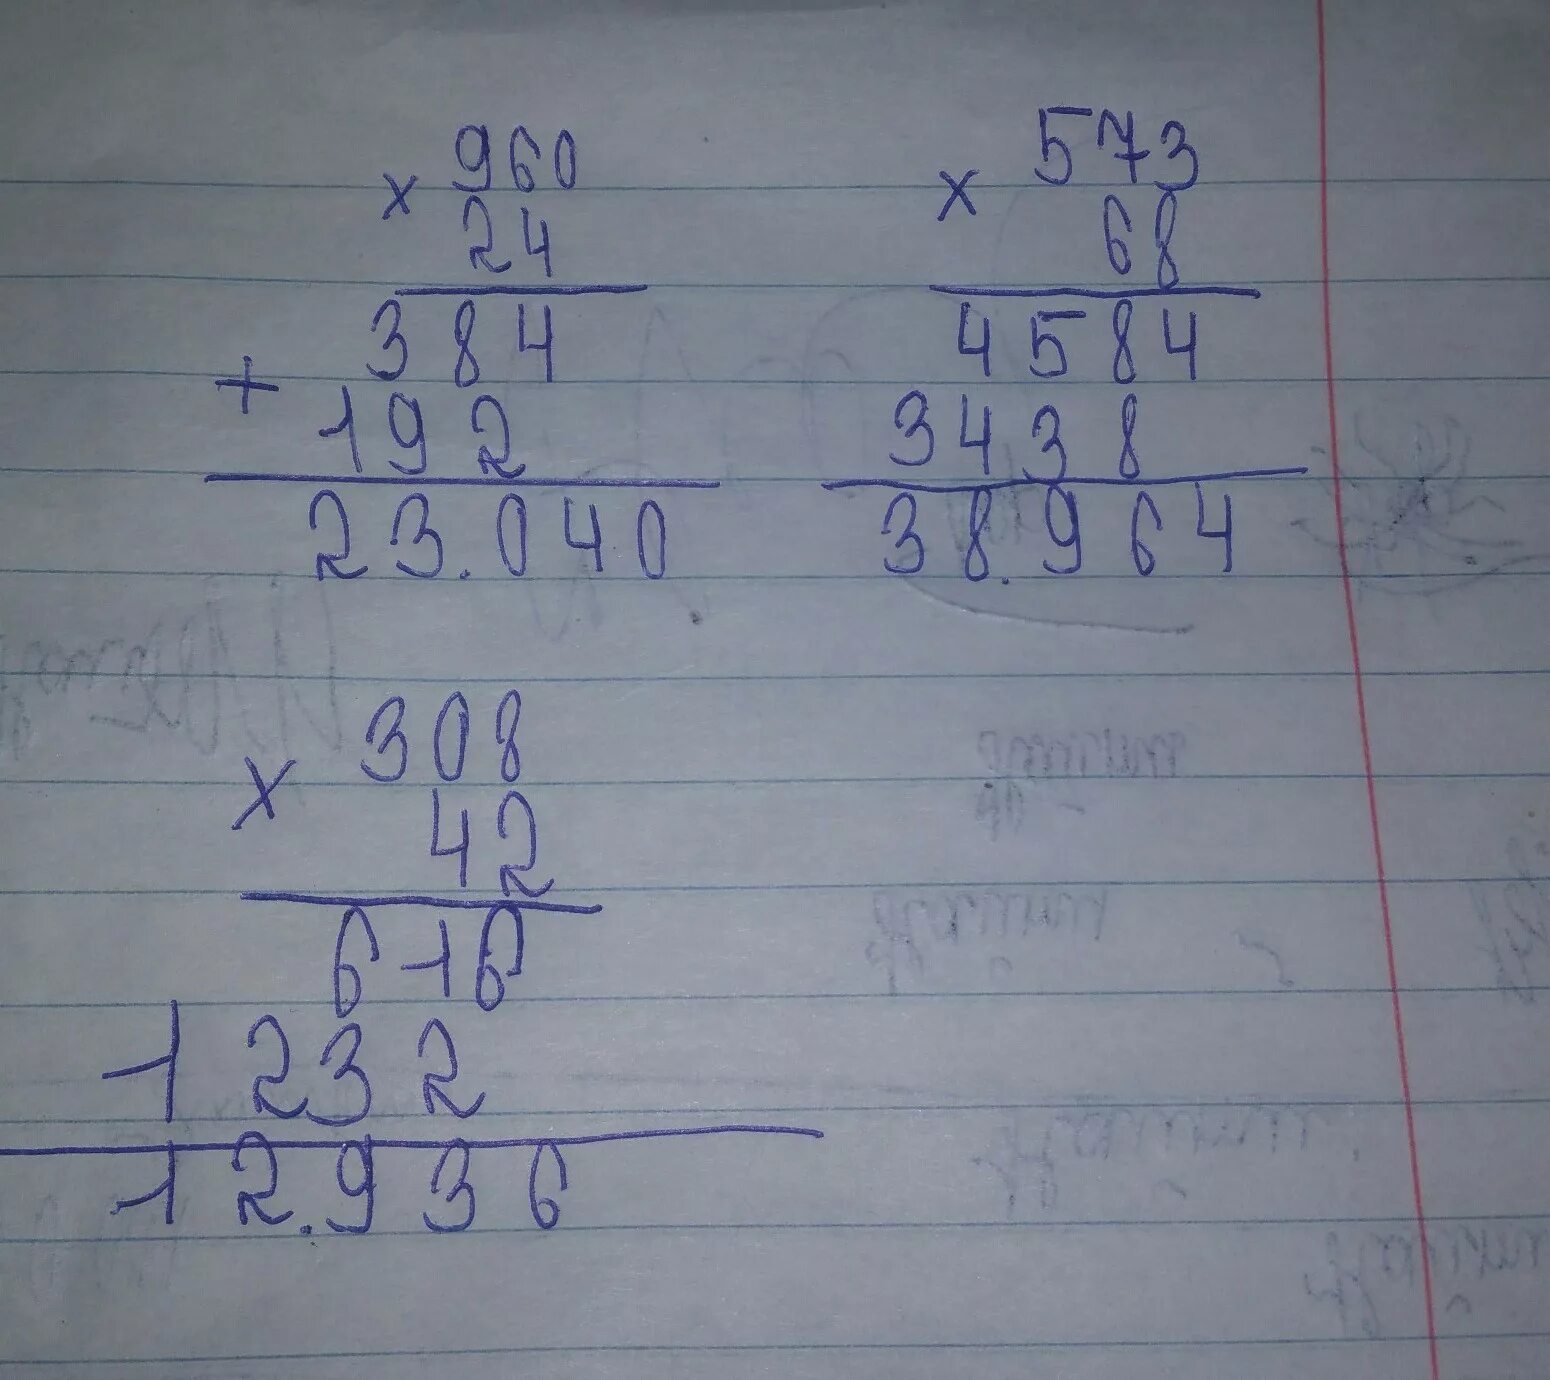 × 960
24
384
+ 192
23.040
× 573
68
4584
3438
38.964
× 308
42
616
1232
12.936